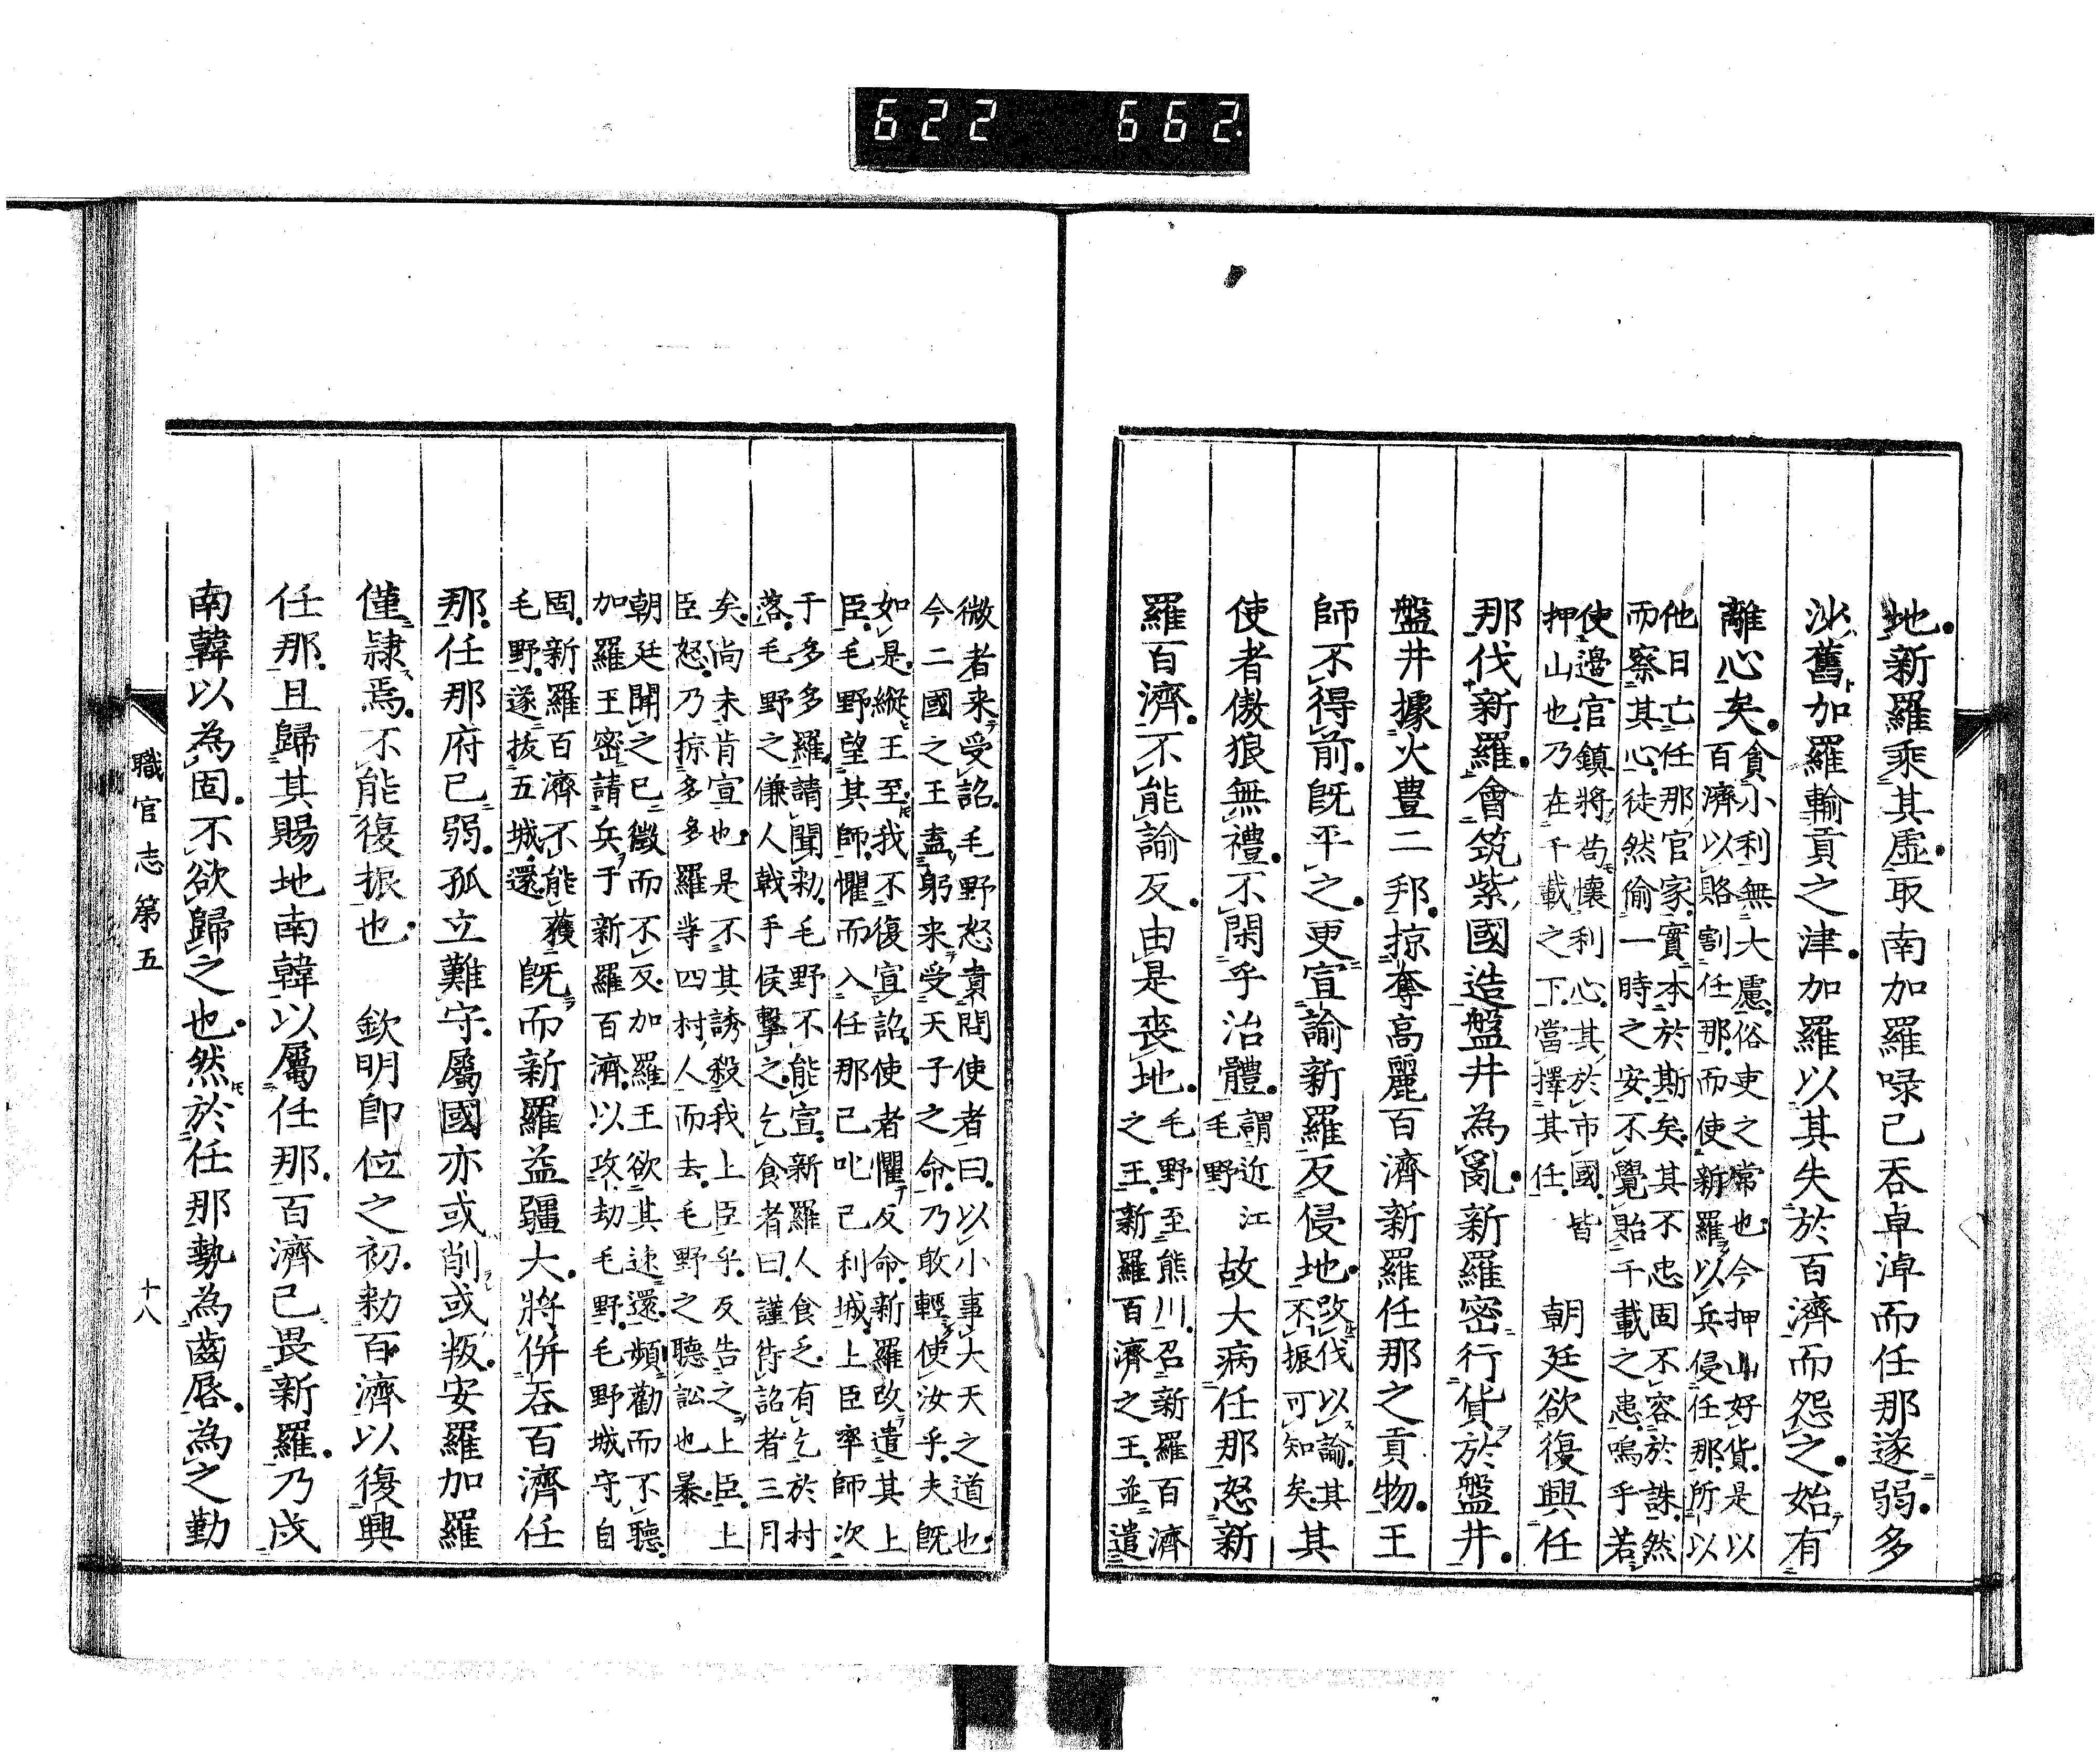 622 662.
地新羅乘其虛取南加羅㖨己吞卓淖而任那遂弱多
沙舊加羅輸貢之津加羅以其失於百濟而怨之始有
離心矣貪小利無大慮俗吏之常也今押山好貨是以
百濟以賂割任那而使新羅以兵侵任那所以
他日亡任那官家實本於斯矣其不忠固不容於誅然
而察其心徒然偷一時之安不覺貽千載之患嗚乎若
使邊官鎮將苟懷利心其於市國皆
押山也乃在千載之下當擇其任
朝廷欲復興任
那伐新羅會筑紫國造盤井為亂新羅密行貨於盤井
盤井據火豊二邦掠奪高麗百濟新羅任那之貢物王
師不得前既平之更宣諭新羅反侵地改伐以諭其
不振可知矣其
使者傲狼無禮不閑乎治體謂近江
毛野
故大病任那怒新
羅百濟不能諭反由是喪地毛野至熊川召新羅百濟
之王新羅百濟之王並遣
微者来受詔毛野怒責問使者曰以小事大天之道也
今二國之王盍躬来受天子之命乃敢輕使汝乎夫既
如是縱王至我不復宣詔使者懼反命新羅改遣其上
臣毛野望其師懼而入任那己叱己利城上臣率師次
于多多羅請聞勅毛野不能宣新羅人食乏有乞於村
落毛野之傔人戟手俟擊之乞食者曰謹待詔者三月
矣尚未肯宣也是不其誘殺我上臣乎反告之上臣上
臣怒乃掠多多羅等四村人而去毛野之聽訟也暴
朝廷聞之已徵而不反加羅王欲其速還頻勸而不聽
加羅王密請兵于新羅百濟以攻劫毛野毛野城守自
固新羅百濟不能獲
毛野遂拔五城還
既而新羅益疆大將併吞百濟任
那任那府已弱孤立難守屬國亦或削或叛安羅加羅
僅隷焉不能復振也 欽明即位之初勅百濟以復興
任那且歸其賜地南韓以屬任那百濟已畏新羅乃戍
南韓以為固不欲歸之也然於任那勢為齒唇為之勤
職官志第五
十八